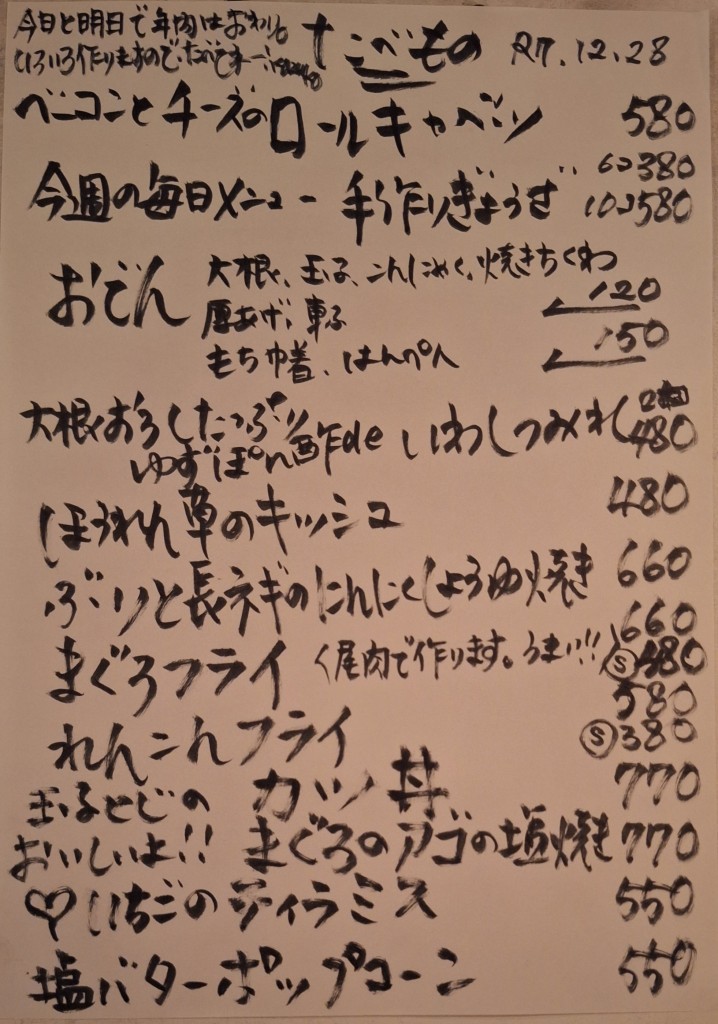 今日と明日で年内はおわり。
いろいろ作りますのでたべてネ
たべもの R7.12.28
ベーコンとチーズのロールキャベツ 580
今週の毎日メニュー 手作りぎょうざ 6コ380
10コ580
おでん 大根、玉子、こんにゃく、焼きちくわ
厚あげ、 120
もち巾着、はんぺん 150
大根おろしたっぷり
ゆずぽん酢de いわしつみれ 480
ほうれん草のキッシュ 480
ぶりと長ネギのにんにくしょうゆ焼き 660
まぐろフライ 尾肉で作ります。うまい!! 660
Ⓢ380
れんこんフライ 580
Ⓢ380
玉子とじの カツ丼 770
おいしいよ!! まぐろのアゴの塩焼き 770
♡いちごのティラミス 550
塩バターポップコーン 550